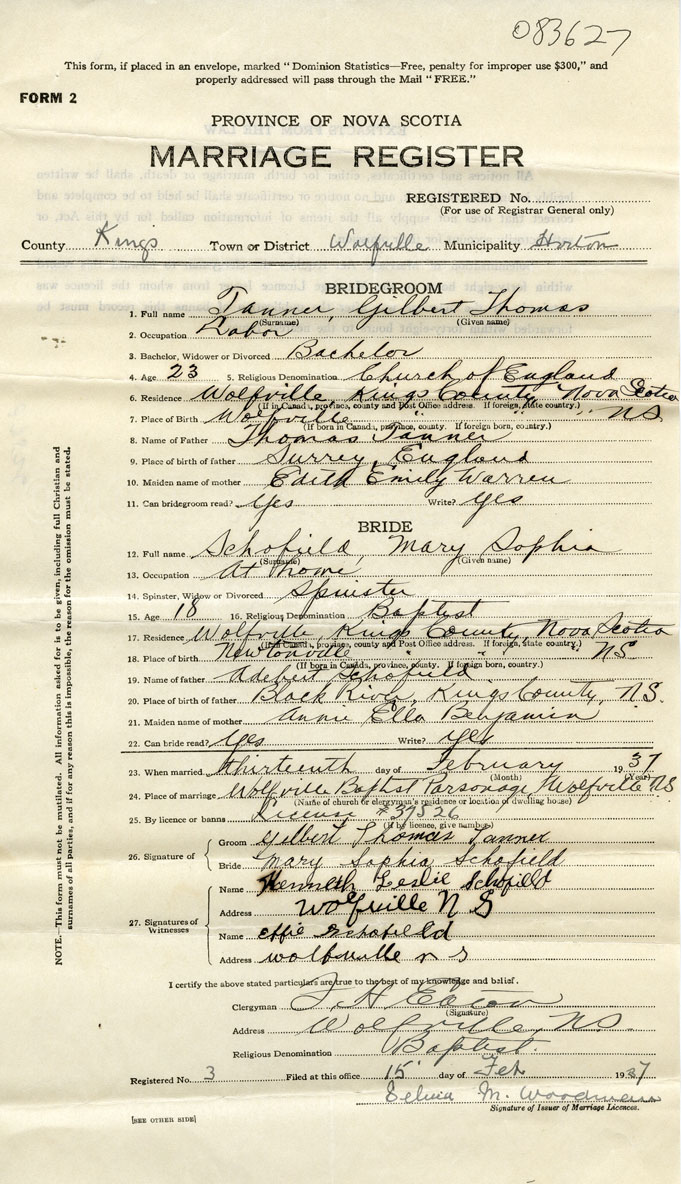 083627
This form, if placed in an envelope, marked "Dominion Statistics—Free, penalty for improper use $300," and
properly addressed will pass through the Mail "FREE."
FORM 2
PROVINCE OF NOVA SCOTIA
MARRIAGE REGISTER
REGISTERED No.
(For use of Registrar General only)
County Kings Town or District Wolfville Municipality Horton
BRIDEGROOM
1. Full name Tanner, Gilbert Thomas
(Surname) (Given name)
2. Occupation Labor
3. Bachelor, Widower or Divorced Bachelor
4. Age 23 5. Religious Denomination Church of England
6. Residence Wolfville, Kings County, Nova Scotia
(If in Canada, province, county and Post Office address. If foreign, state country.)
7. Place of Birth Wolfville " " NS
(If born in Canada, province, county. If foreign born, country.)
8. Name of Father Thomas Tanner
9. Place of birth of father Surrey, England
10. Maiden name of mother Edith Emily Warren
11. Can bridegroom read? Yes Write? Yes
BRIDE
12. Full name Schofield, Mary Sophia
(Surname) (Given name)
13. Occupation At Home
14. Spinster, Widow or Divorced Spinster
15. Age 18 16. Religious Denomination Baptist
17. Residence Wolfville, Kings County, Nova Scotia
(If in Canada, province, county and Post Office address. If foreign, state country.)
18. Place of birth Newtonville " " NS.
(If born in Canada, province, county. If foreign born, country.)
19. Name of father Adelbert Schofield
20. Place of birth of father Black River, Kings County, N.S.
21. Maiden name of mother Annie Ella Benjamin
22. Can bride read? Yes Write? Yes
23. When married thirteenth day of February 1937
(Month) (Year)
24. Place of marriage Wolfville Baptist Parsonage, Wolfville NS
(Name of church or clergyman's residence or location of dwelling house)
25. By licence or banns License #39526
(If by licence, give number)
26. Signature of Groom Gilbert Thomas Tanner
Bride Mary Sophia Schofield
27. Signatures of Witnesses
Name Kenneth Leslie Schofield
Address Wolfville N S
Name Effie Schofield
Address wolfville n s
I certify the above stated particulars are true to the best of my knowledge and belief.
Clergyman Eaton
(Signature)
Address Wolfville, N.S.
Religious Denomination Baptist.
Registered No. 3 Filed at this office 15 day of Feb 1937
M. Woodman
Signature of Issuer of Marriage Licences.
[SEE OTHER SIDE]
NOTE.—This form must not be mutilated. All information asked for is to be given, including full Christian and
surnames of all parties, and if for any reason this is impossible, the reason for the omission must be stated.